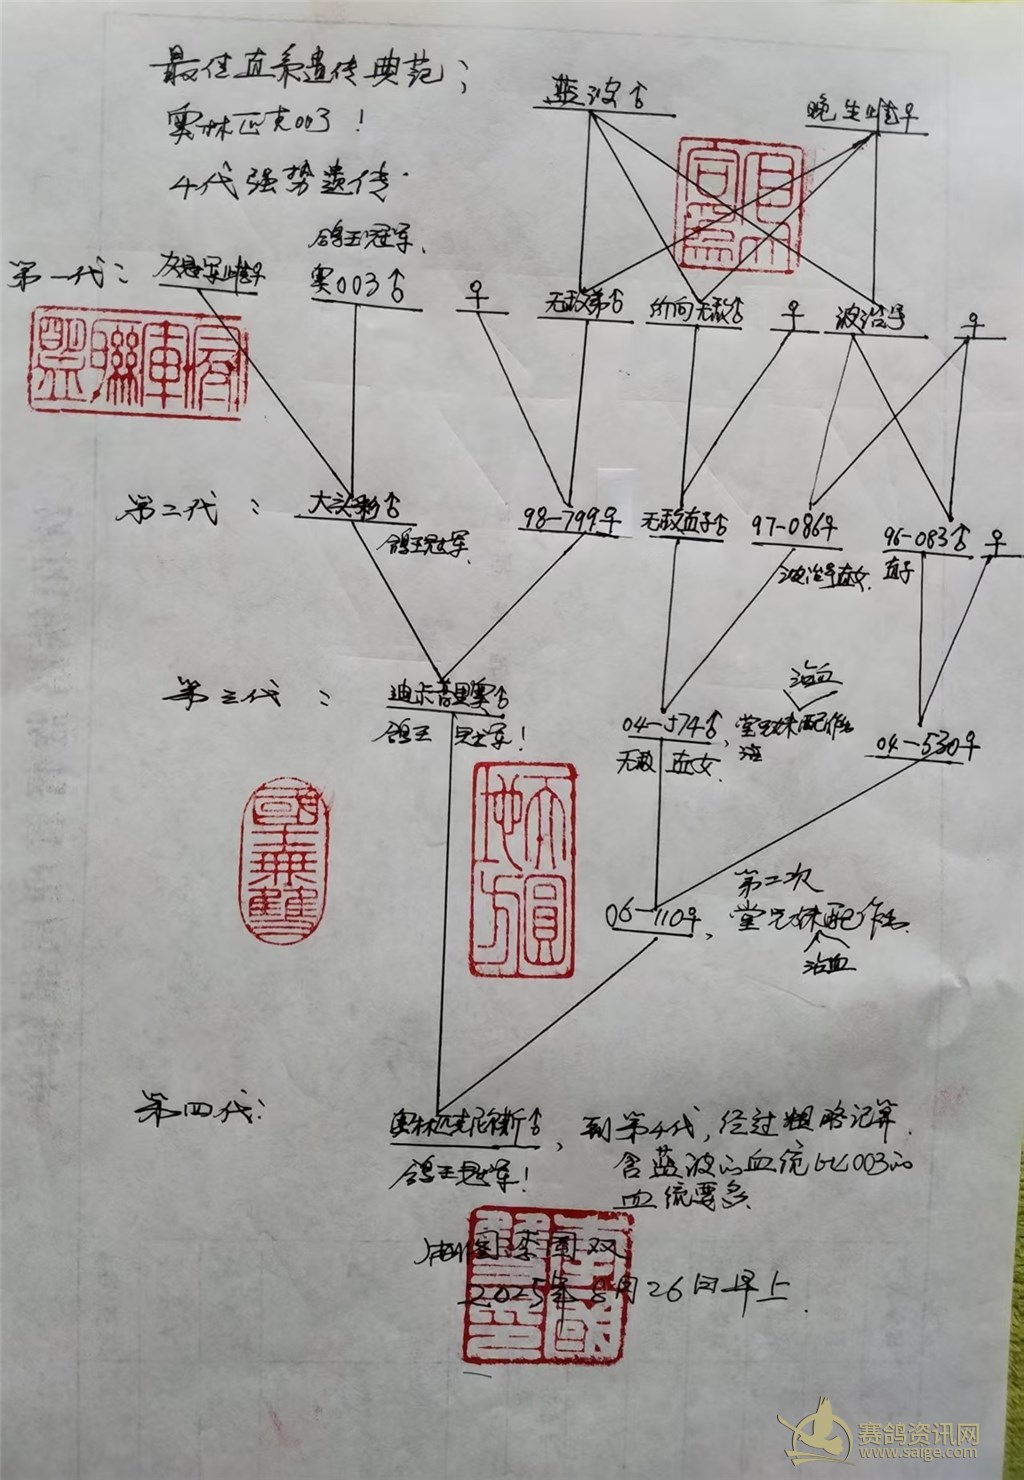 最佳直系遗传典范；
奥林匹克003！
4代强势遗传
蓝波♂
晚生雌♀
鸽王冠军、
第一代：
灰冠军雌♀
奥003♂
♀
无敌弟♂
所向无敌♂
♀
波治♀
♀
第二代：
大头彩♂
鸽王冠军
98-799♀
无敌直子♂
97-086♀
波治♀直女
96-083♂
直子
♀
第三代：
迪卡普里奥♂
鸽王冠军！
04-574♂
无敌直女
沾血
堂兄妹配作出
04-530♀
06-110♀，
第二次
堂兄妹配作出
沾血
第四代：
奥林匹克尼科斯♂
鸽王冠军！
到第4代，经过粗略记算
含蓝波的血统比003的
血统要多
李国双
2025年8月26日早上
國士無雙
天圓地方
赛鸽资讯网
www.saige.com